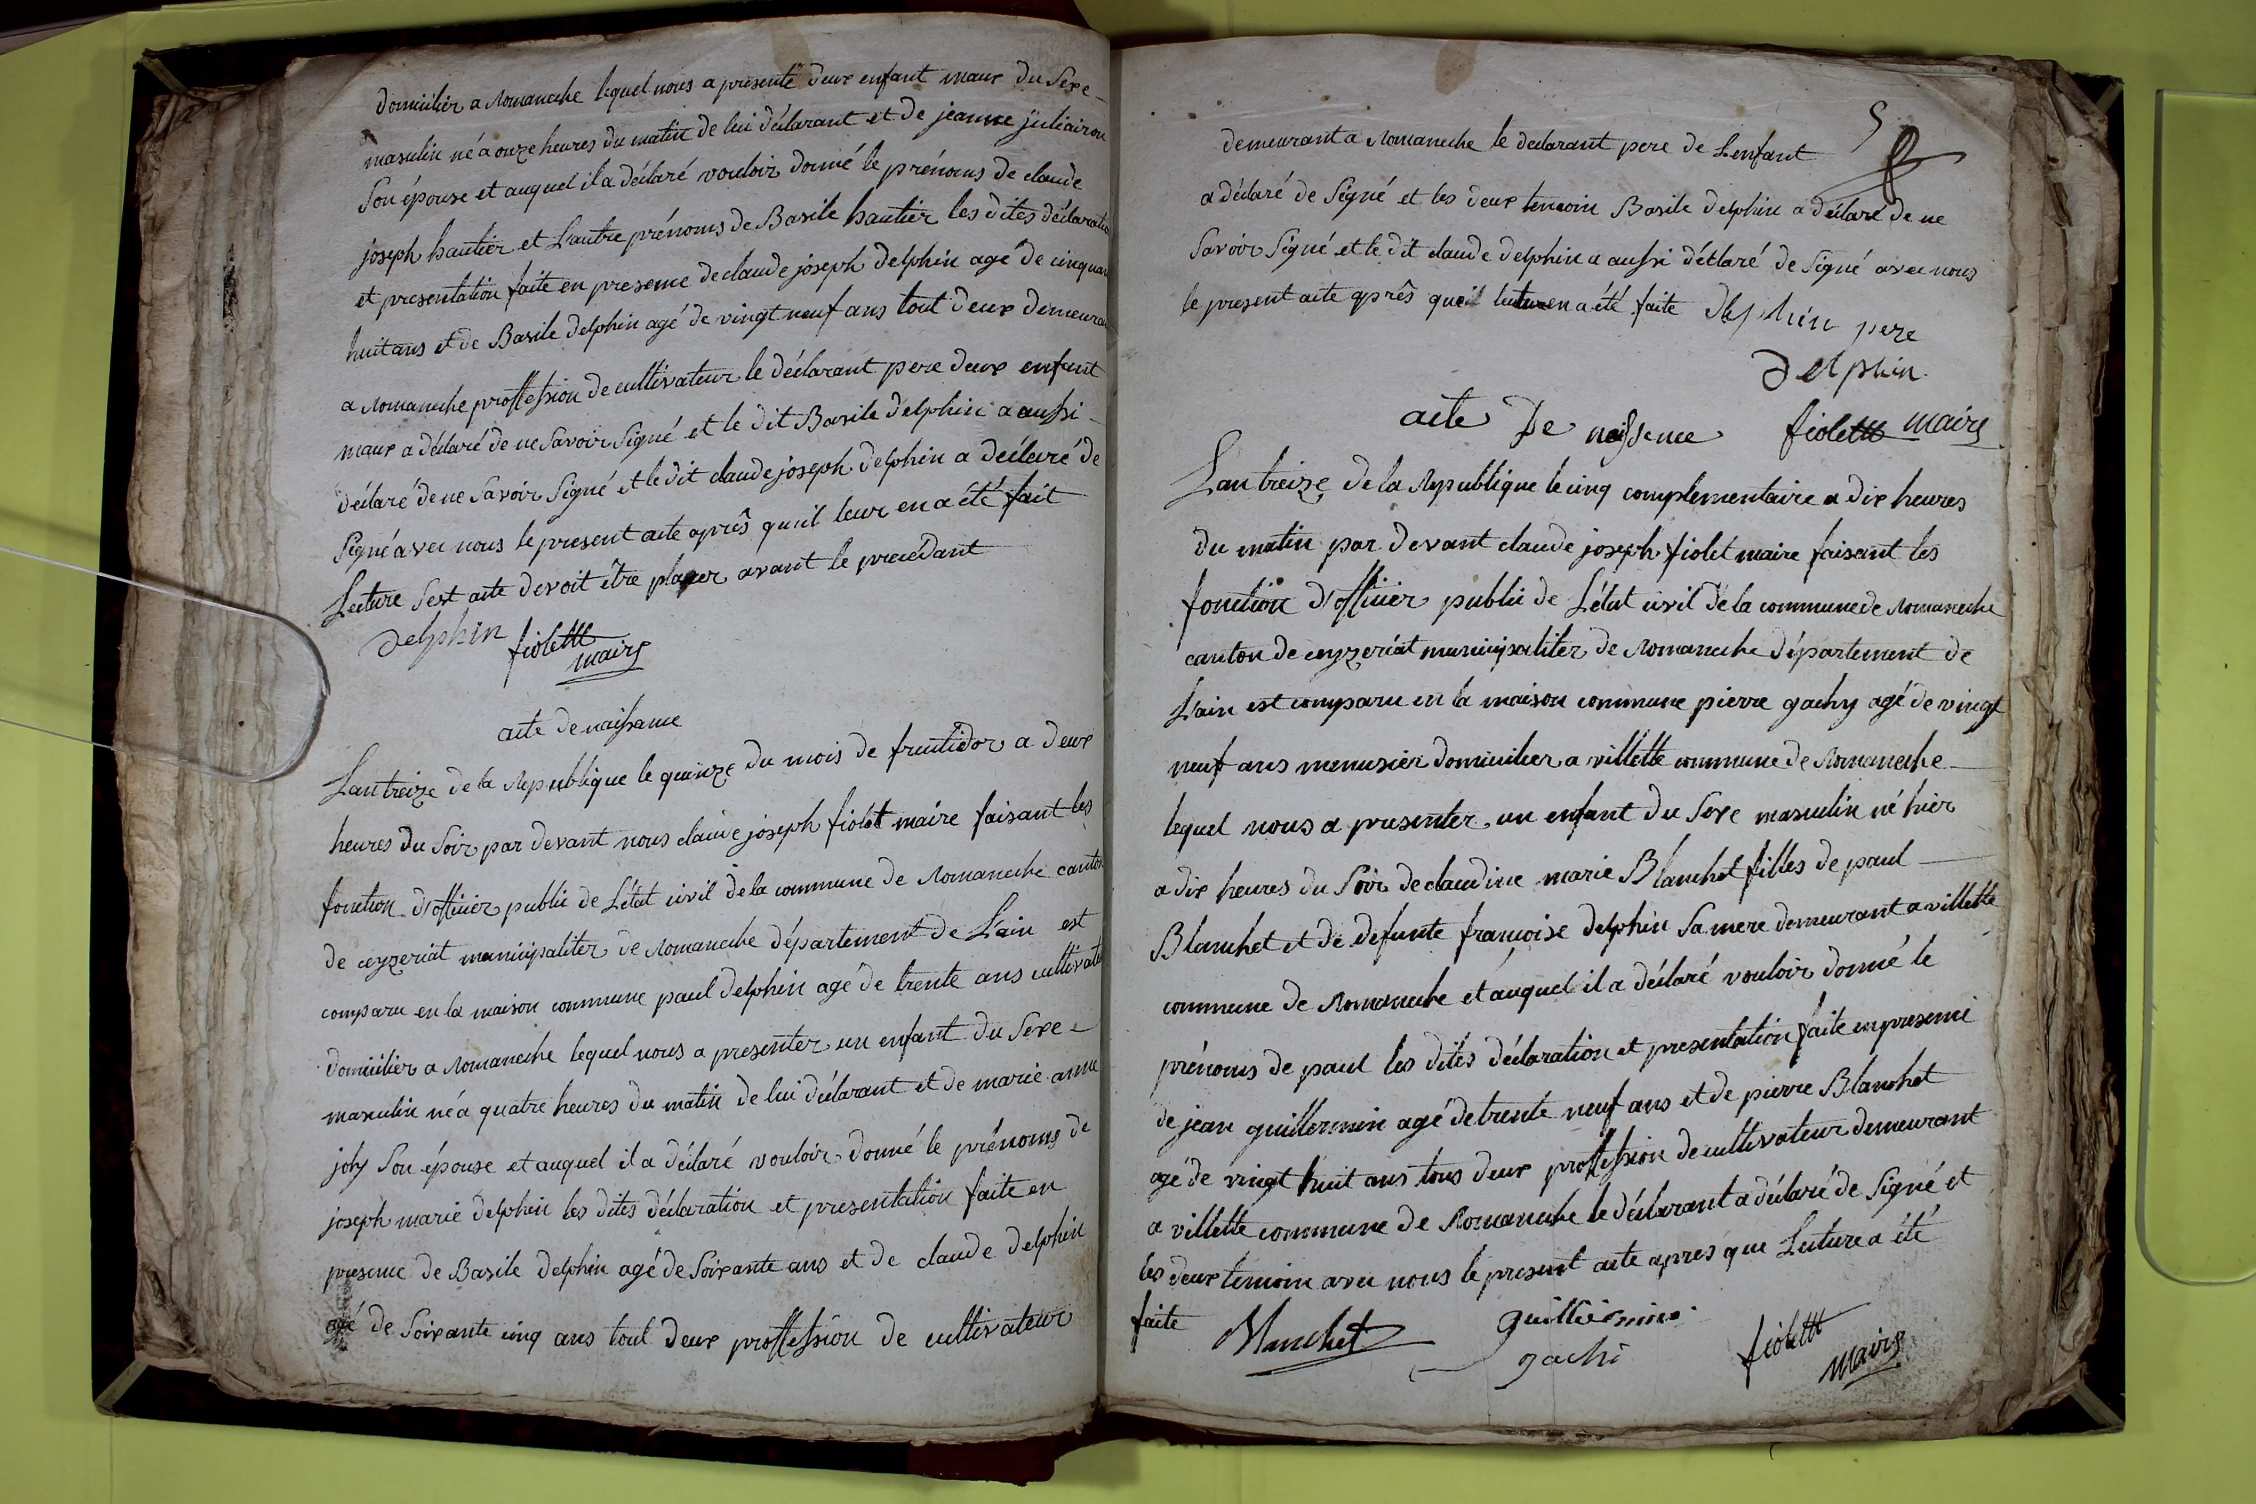 domicilier a Romaneche lequel nous a presenté deux enfant maux du Sexe
masculin né a onze heures du matin de lui déclarant et de jeanne juliairon
Son épouse et auquel il a déclaré vouloir donné le prénoms de claude
joseph hautier et L'autre prénoms de Basile hautier les dites déclaration
et presentation faite en presence de claude joseph delphin agé de cinquan
huit ans et de Basile delphin agé de vingt neuf ans tout deux demeuran
a Romaneche proffession de cultivateur le déclarant pere deux enfant
maux a déclaré de ne Savoir Signé et le dit Basile delphin a aussi
déclaré de ne Savoir Signé et le dit claude joseph delphin a déclaré de
Signé avec nous le present acte aprês quil leur en a été fait
Lecture Sest acte devoit être placer avant le precedant
delphin fiolettt
maire
acte de naissance
Lan treize de la Republique le quinze du mois de fructidor a deux
heures du Soir par devant nous claude joseph fiolet maire faisant les
fonction d'officier public de L'état civil de la commune de Romaneche canton
de ceyzeriat municipaliter de Romaneche département de L'ain est
comparu en la maison commune paul delphin agé de trente ans cultivate
domicilier a Romaneche lequel nous a presenter un enfant du Sexe
masculin né a quatre heures du matin de lui déclarant et de marie anne
joly Son épouse et auquel il a déclaré vouloir donné le prénoms de
joseph marie delphin les dites déclaration et presentation faite en
presence de Basile delphin agé de Soixante ans et de claude delphin
agé de Soixante cinq ans tout deux proffession de cultivateur
5
demeurant a Romaneche le declarant pere de L'enfant
a déclaré de Signé et les deux temoin Basile delphin a déclaré de ne
Savoir Signé et le dit claude delphin a aussi déclaré de Signé avec nous
le present acte aprês queil lecture en a été faite delphin pere
delphin
acte de naissence fiolettt maire
Lan treize de la Republique le cinq complementaire a dix heures
du matin par devant claude joseph fiolet maire faisant les
fonction d'officier public de L'état civil de la commune de Romaneche
canton de ceyzeriat municipaliter de Romaneche département de
L'ain est comparu en la maison commune pierre gachy agé de vingt
neuf ans menusier domicilier a villette commune de Romaneche
lequel nous a presenter un enfant du Sexe masculin né hier
a dix heures du Soir de claudine marie Blanchet filles de paul
Blanchet et de defunte francoise delphin Sa mere demeurant a villette
commune de Romaneche et auquel il a déclaré vouloir donné le
prénoms de paul les dites déclaration et presentation faite en presence
de jean guillermin agé de trente neuf ans et de pierre Blanchet
agé de vingt huit ans tous deux proffession de cultivateur demeurant
a villette commune de Romaneche le déclarant a déclaré de Signé et
les deux temoin avec nous le present acte apres que Lecture a été
faite Blanchet guillermin
gachi fiolettt
maire